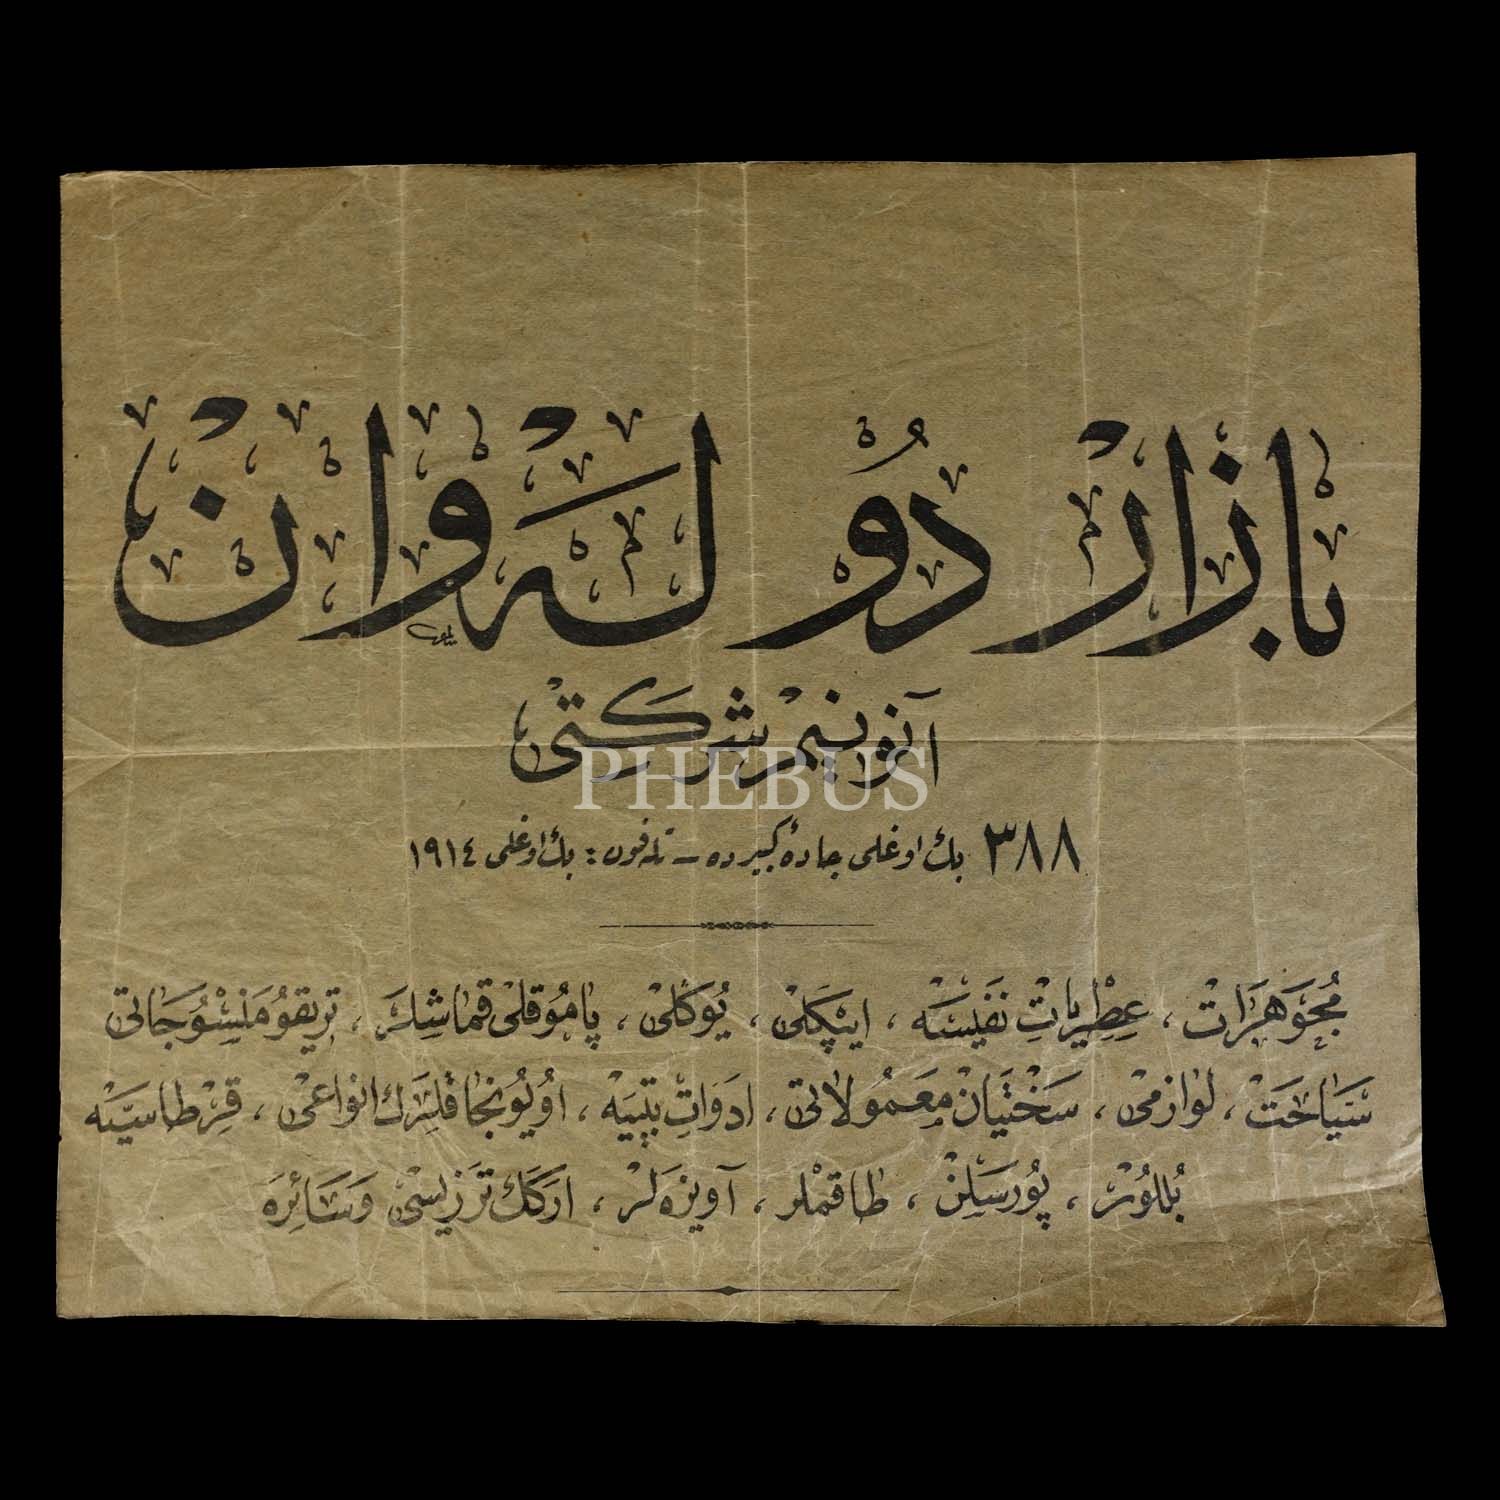 بازار دو لەوان
آنونیم شركتی
٣٨٨ بك اوغلی جادهٔ كبیرده — تله‌فون : بك اوغلی ١٩١٤
مجوهرات ، عطریات نفیسه ، ایپكلی ، یوكلی ، پاموقلی قماشلر ، تریقو منسوجاتی
سیاحت ، لوازمی ، سختیان معمولاتی ، ادوات بیتیه ، اویونجاقلرك انواعی ، قرطاسیه
بللور ، پورسلن ، طاقملر ، آویزه‌لر ، اركك ترزیسی وسائره
PHEBUS